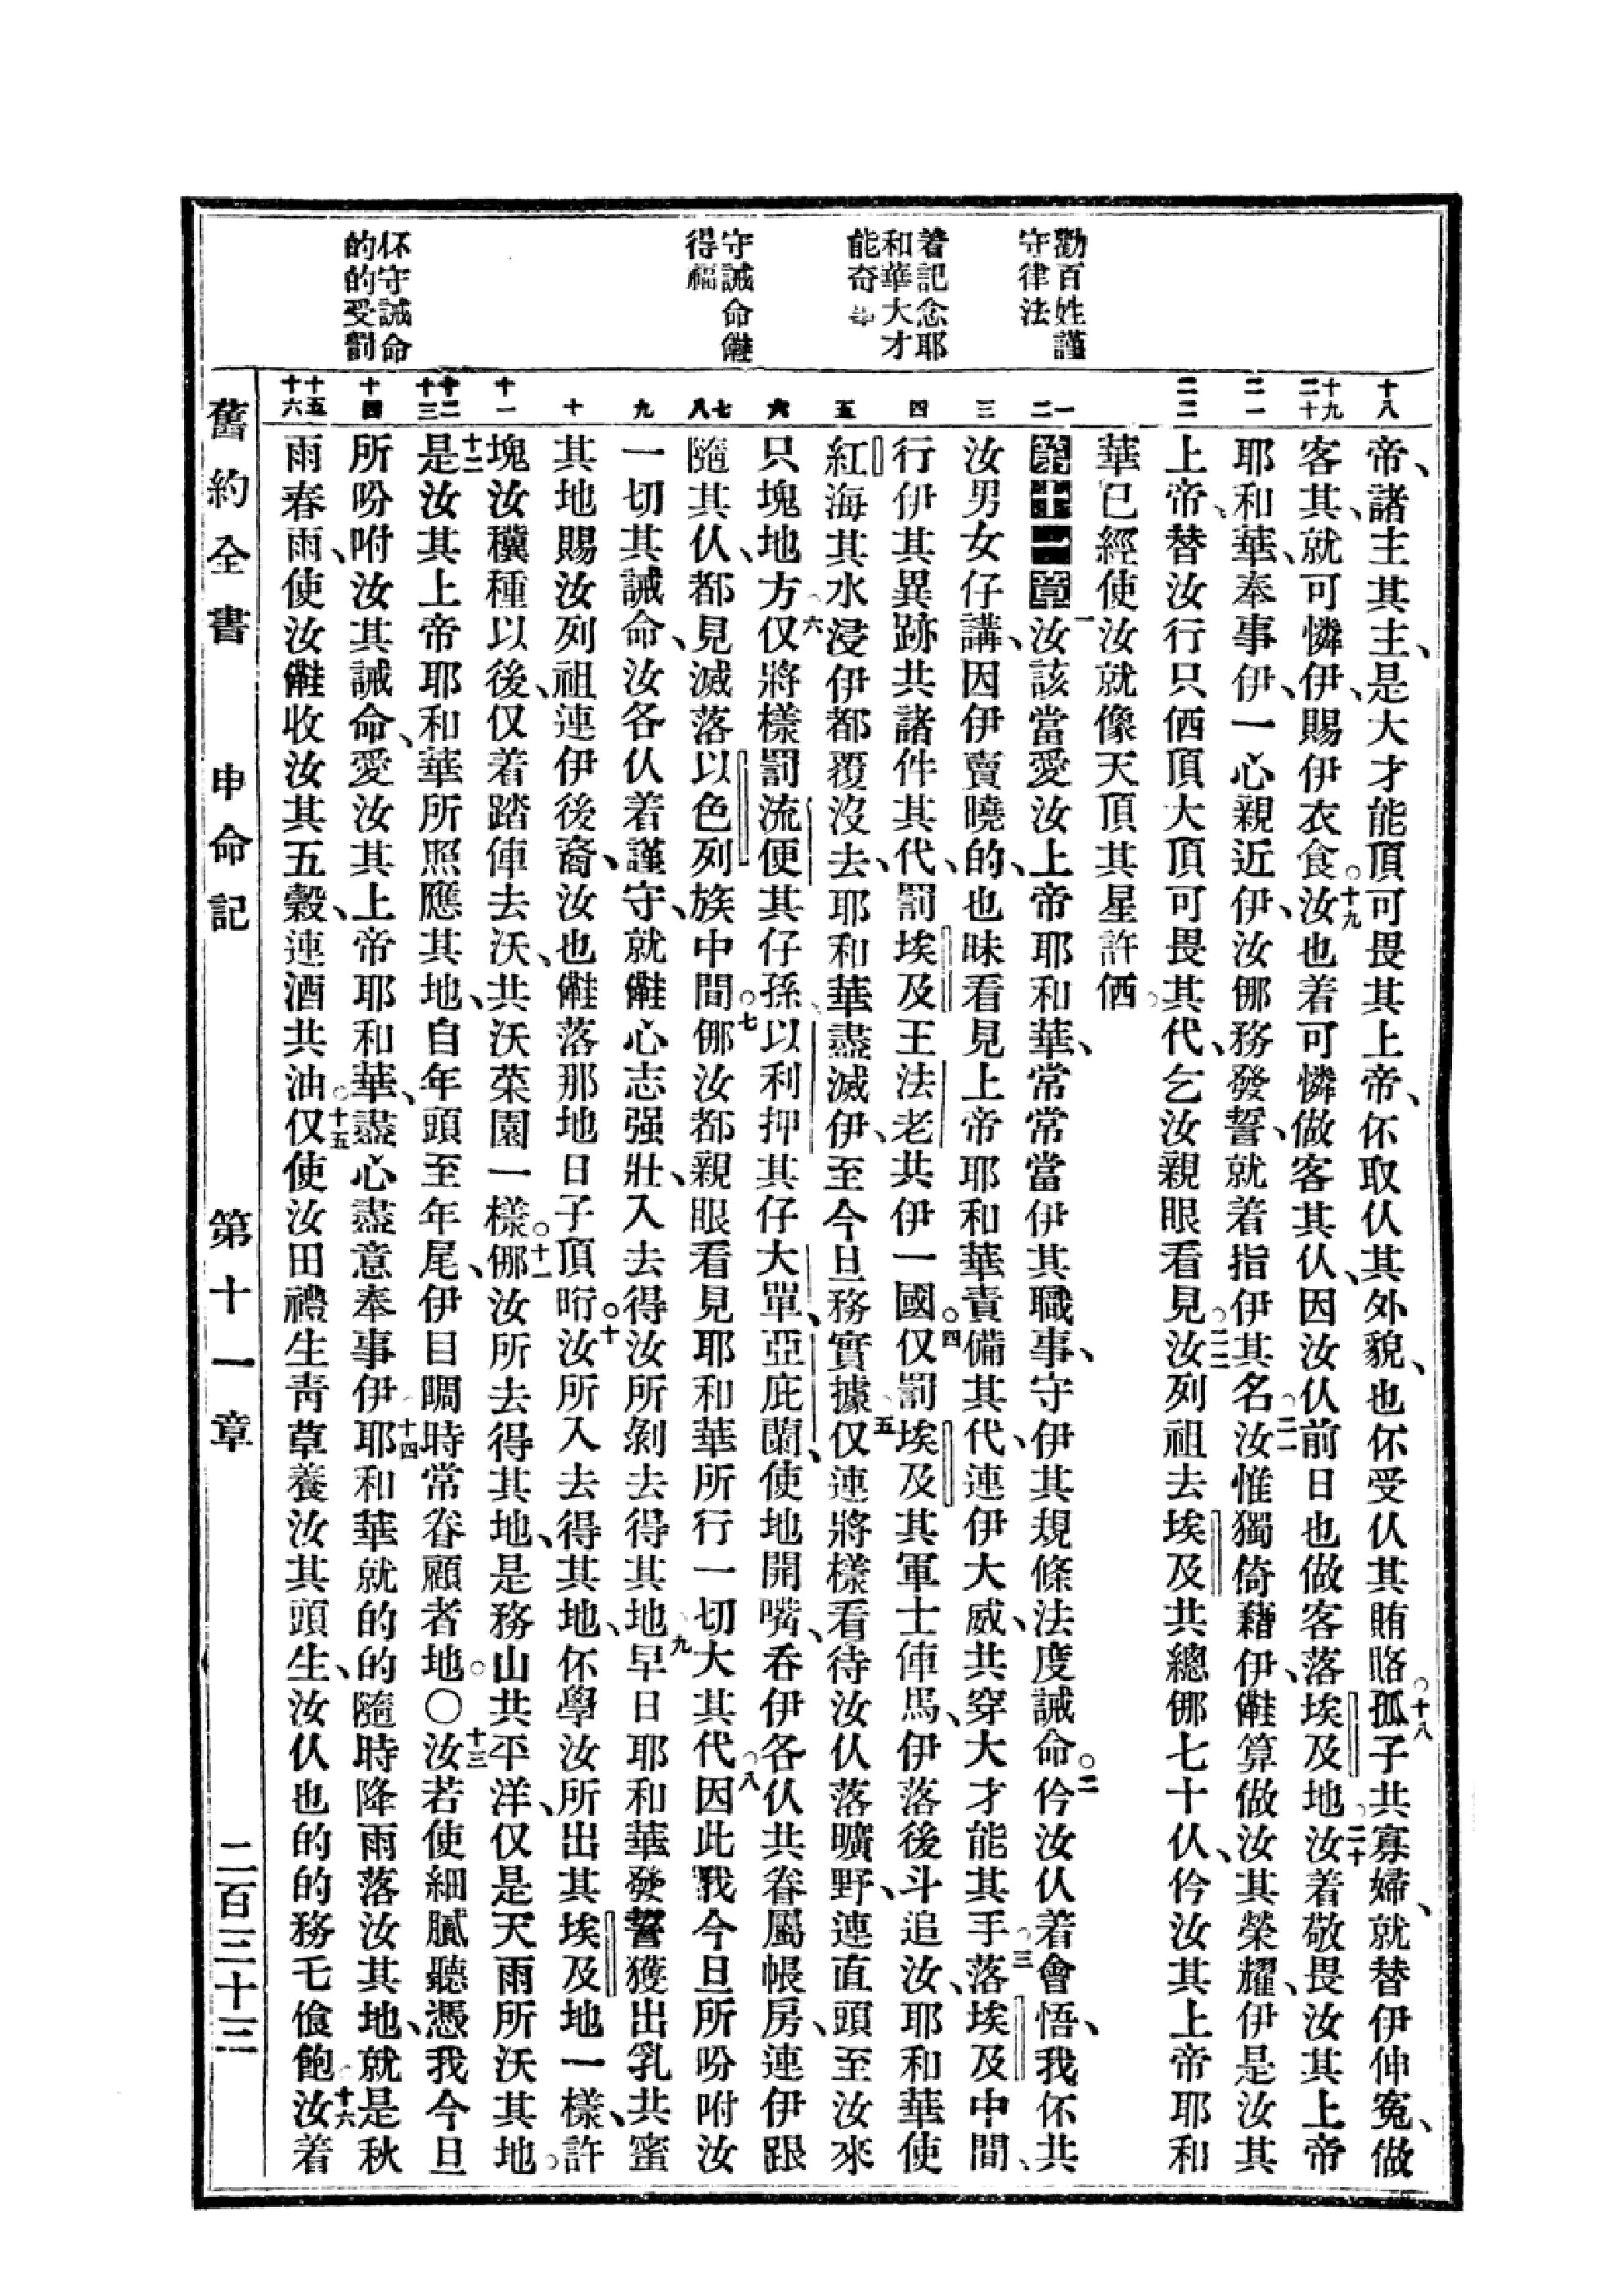 勸百姓謹
守律法
着記念耶
和華大才
能奇事
守誡命𣍐
得福
伓守誡命
的的受罰
十八
十九
二十
二一
二二
一
二
三
四
五
六
七
八
九
十
十一
十二
十三
十四
十五
十六
帝、諸主其主、是大才能頂可畏其上帝、伓取仈其外貌、也伓受仈其賄賂。十八孤子共寡婦、就替伊伸寃、做
客其、就可憐伊、賜伊衣食。十九汝也着可憐做客其仈、因汝仈前日也做客落埃及地。二十汝着敬畏汝其上帝
耶和華、奉事伊、一心親近伊、汝㑚務發誓、就着指伊其名。二一汝惟獨倚藉伊、㒜算做汝其榮耀、伊是汝其
上帝、替汝行只偌頂大頂可畏其代、乞汝親眼看見。二二汝列祖去埃及共總㑚七十仈、伶汝其上帝耶和
華已經使汝就像天頂其星許偌。
第十一章一汝該當愛汝上帝耶和華、常常當伊其職事、守伊其規條法度誡命。二伶汝仈着會悟、我伓共
汝男女仔講、因伊賣曉的、也昧看見上帝耶和華責備其代、連伊大威、共穿大才能其手。三落埃及中間、
行伊其異跡共諸件其代、罰埃及王法老共伊一國。四仅罰埃及其軍士俥馬、伊落後斗追汝、耶和華使
紅海其水浸伊都覆沒去、耶和華盡滅伊、至今旦務實據。五仅連將樣看待汝仈落曠野、連直頭至汝來
只塊地方。六仅將樣罰流便其仔孫、以利押其仔大單、亞庇蘭、使地開嘴、呑伊各仈共眷屬帳房、連伊跟
隨其仈、都見滅落以色列族中間。七㑚汝都親眼看見耶和華所行一切大其代。八因此我今旦所吩咐汝
一切其誡命、汝各仈着謹守、就㒜心志强壯、入去得汝所剝去得其地、九早日耶和華發誓獲出乳共蜜
其地賜汝列祖、連伊後裔、汝也㒜落那地日子頂𣈯。十汝所入去得其地、伓學汝所出其埃及地一樣、許
塊汝䆀種以後、仅着踏俥去沃、共沃菜園一樣。十一㑚汝所去得其地、是務山共平洋、仅是天雨所沃其地。
十二是汝其上帝耶和華所照應其地、自年頭至年尾、伊目睭時常眷顧者地。〇十三汝若使細膩聽憑我今旦
所吩咐汝其誡命、愛汝其上帝耶和華、盡心盡意奉事伊。十四耶和華就的的隨時降雨落汝其地、就是秋
雨春雨、使汝㒜收汝其五穀、連酒共油。十五仅使汝田禮生靑草養汝其頭生、汝仈也的的務乇飡飽。十六汝着
舊約全書　申命記　第十一章　二百三十三